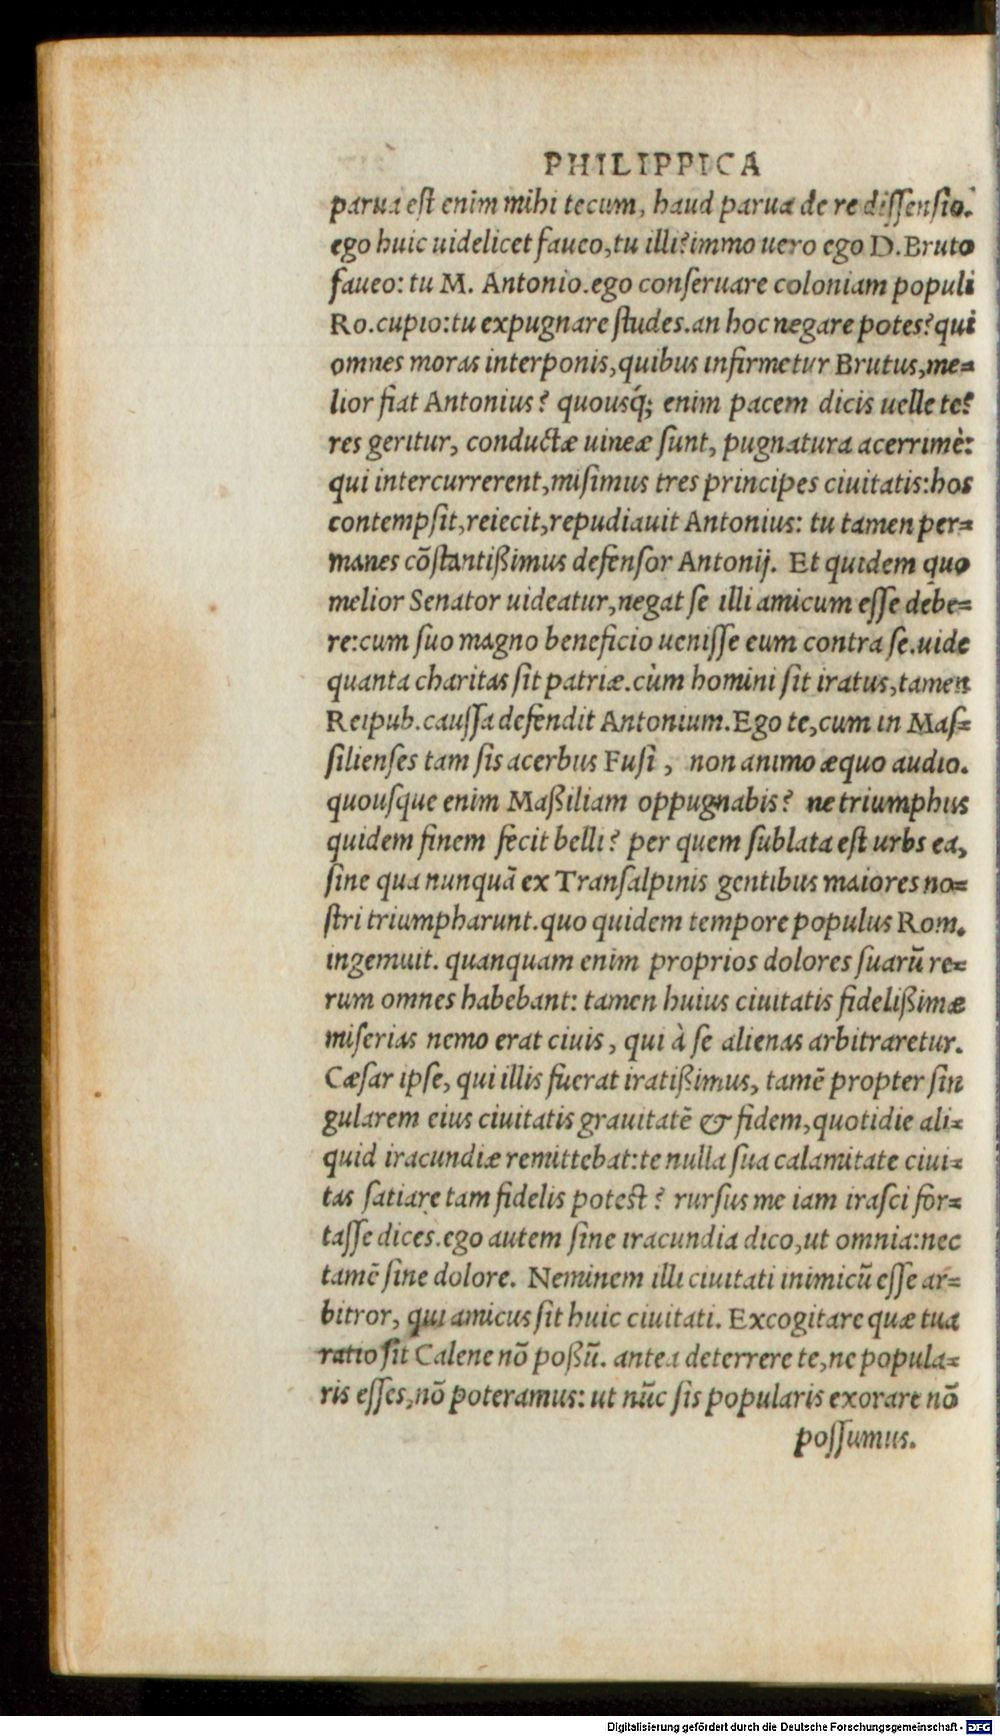 PHILIPPICA
parua est enim mihi tecum, haud parua de re dissensio.
ego huic uidelicet faueo,tu illi?immo uero ego D.Bruto
faueo: tu M. Antonio.ego conseruare coloniam populi
Ro.cupio:tu expugnare studes.an hoc negare potes?qui
omnes moras interponis,quibus infirmetur Brutus,me=
lior fiat Antonius? quousq́; enim pacem dicis uelle te?
res geritur, conductæ uineæ sunt, pugnatura acerrimè:
qui intercurrerent,misimus tres principes ciuitatis:hos
contempsit,reiecit,repudiauit Antonius: tu tamen per=
manes cõstantißimus defensor Antonij. Et quidem quo
melior Senator uideatur,negat se illi amicum esse debe=
re:cum suo magno beneficio uenisse eum contra se.uide
quanta charitas sit patriæ.cùm homini sit iratus,tamen
Reipub.caussa defendit Antonium.Ego te,cum in Mas=
silienses tam sis acerbus Fusi , non animo æquo audio.
quousque enim Maßiliam oppugnabis? ne triumphus
quidem finem fecit belli? per quem sublata est urbs ea,
sine qua nunquã ex Transalpinis gentibus maiores no=
stri triumpharunt.quo quidem tempore populus Rom.
ingemuit. quanquam enim proprios dolores suarũ re=
rum omnes habebant: tamen huius ciuitatis fidelißimæ
miserias nemo erat ciuis, qui à se alienas arbitraretur.
Cæsar ipse, qui illis fuerat iratißimus, tamẽ propter sin
gularem eius ciuitatis grauitatẽ & fidem,quotidie ali=
quid iracundiæ remittebat:te nulla sua calamitate ciui=
tas satiare tam fidelis potest? rursus me iam irasci for=
tasse dices.ego autem sine iracundia dico,ut omnia:nec
tamẽ sine dolore. Neminem illi ciuitati inimicũ esse ar=
bitror, qui amicus sit huic ciuitati. Excogitare quæ tua
ratio sit Calene nõ poßũ. antea deterrere te,ne popula=
ris esses,nõ poteramus: ut nũc sis popularis exorare nõ
possumus.
Digitalisierung gefördert durch die Deutsche Forschungsgemeinschaft - DFG